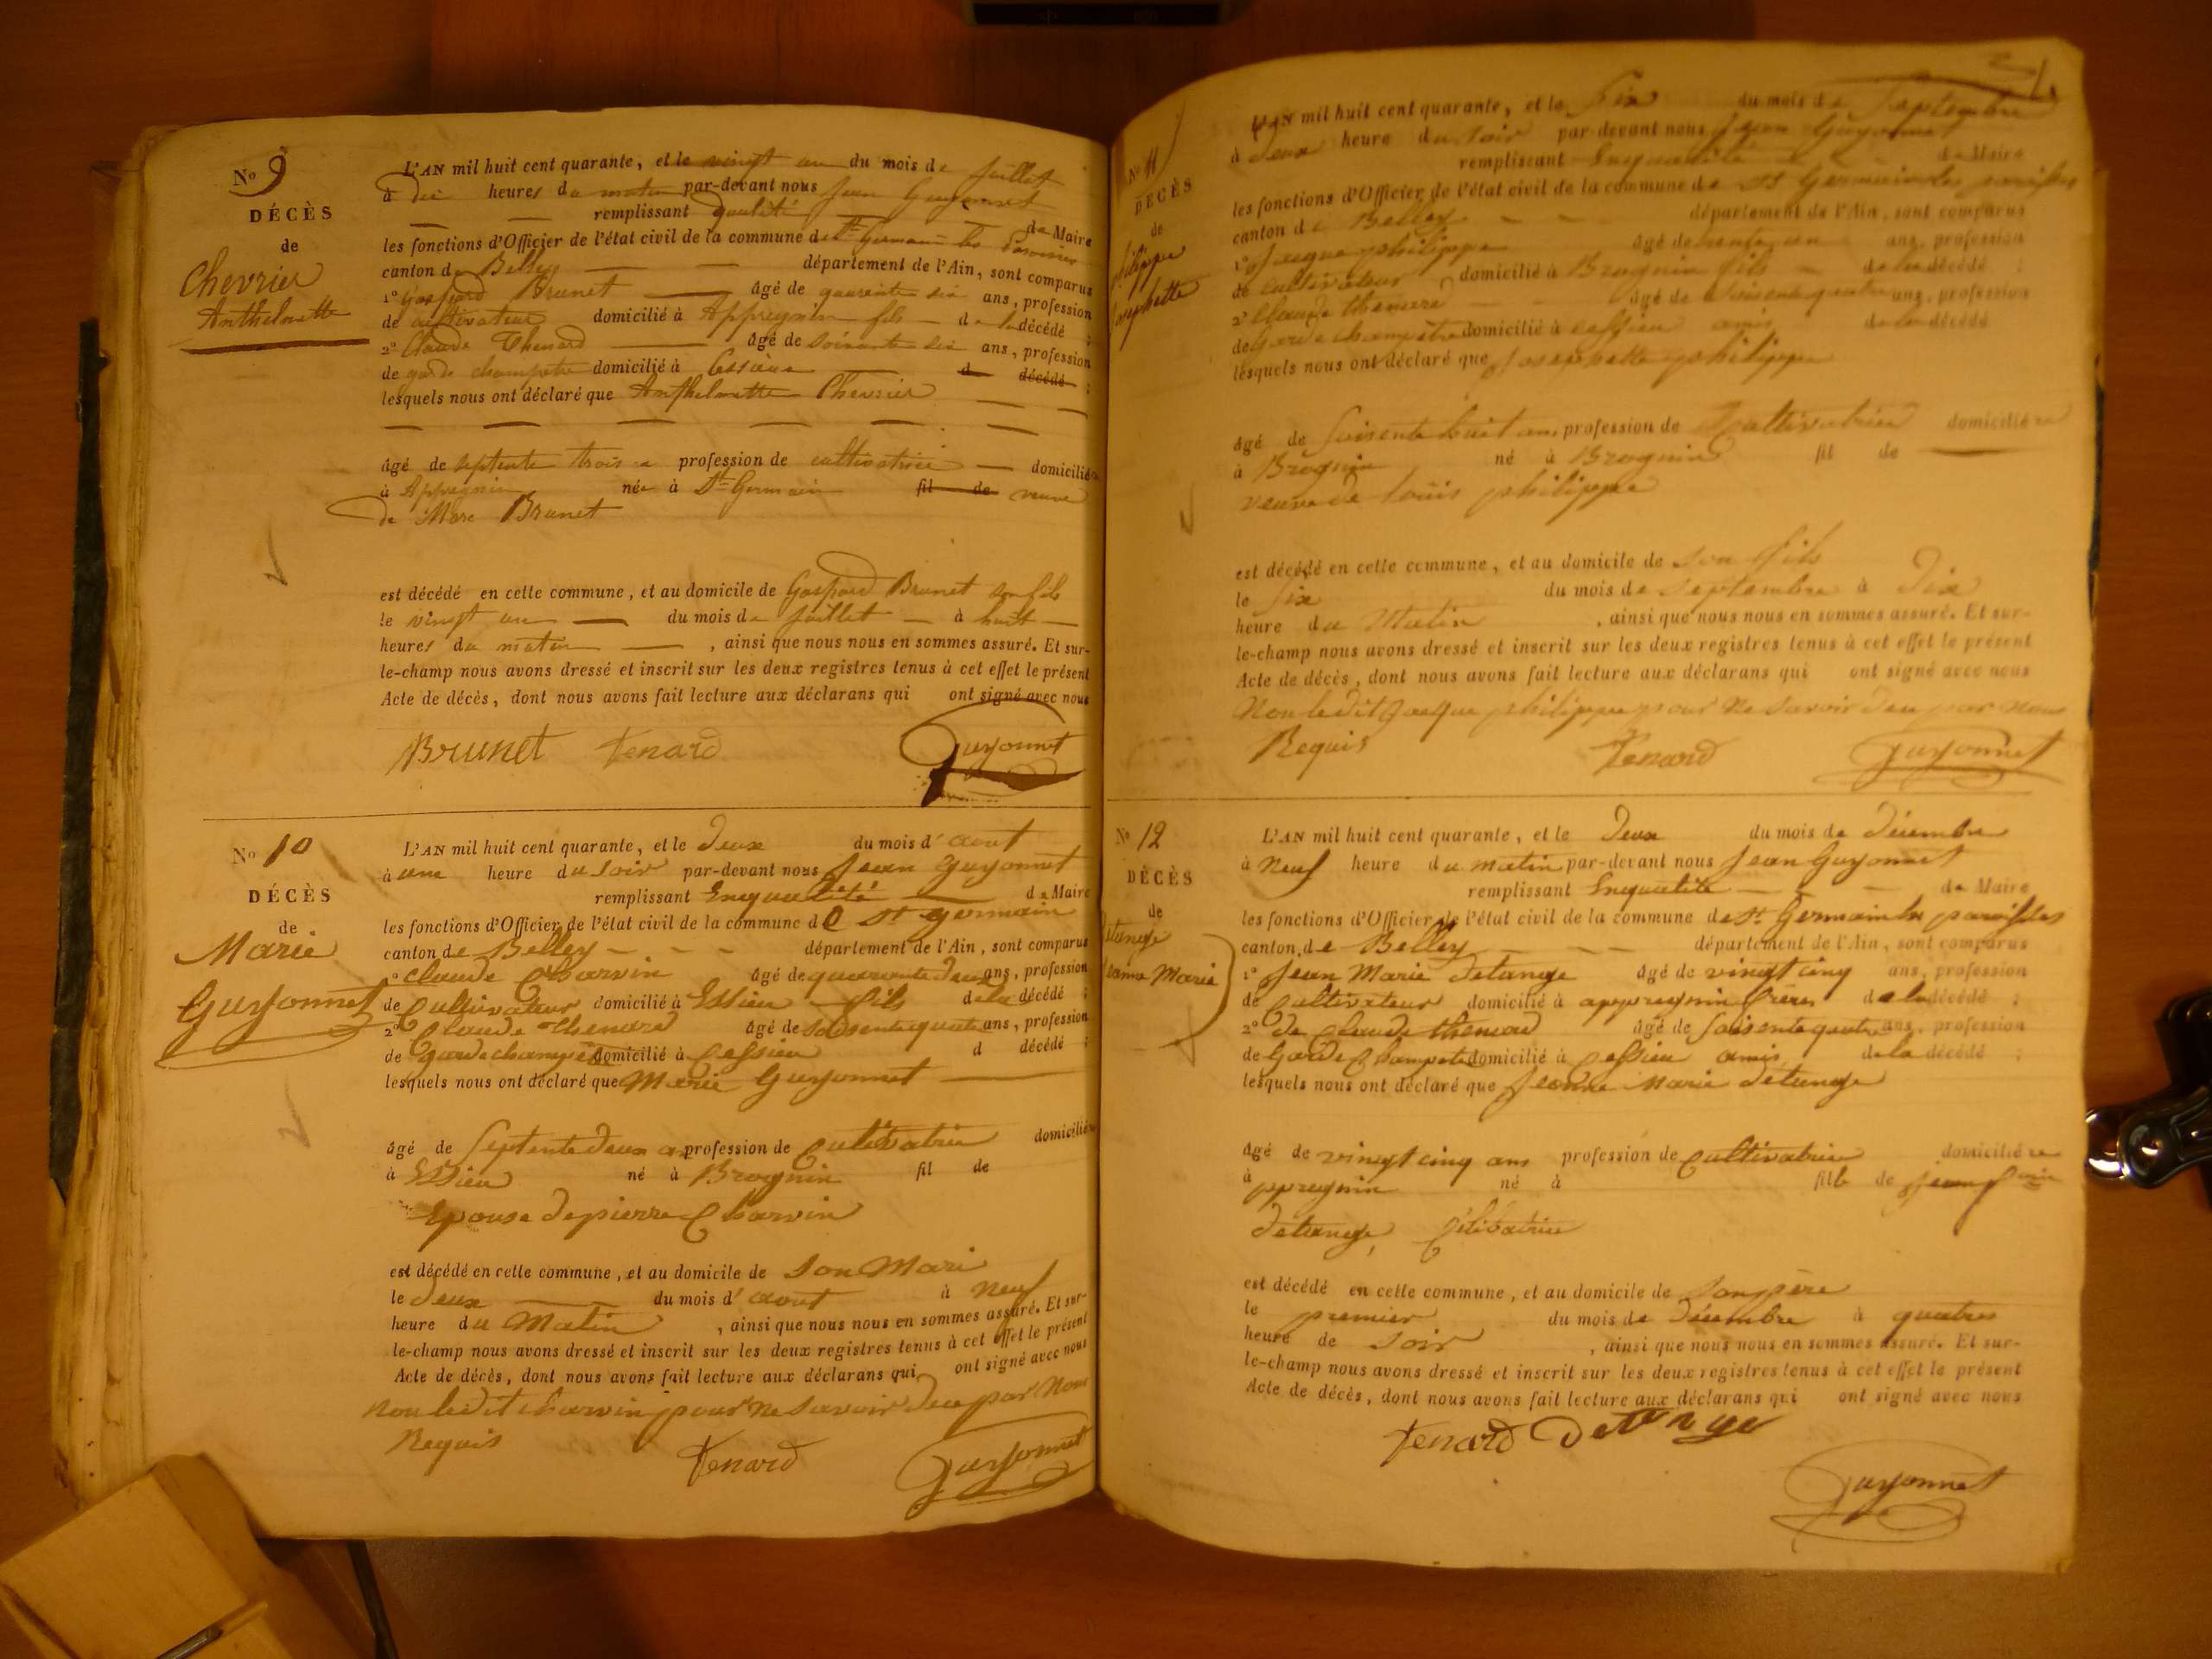 No 9
DÉCÈS
de
Chevrier
Anthelmette
L'AN mil huit cent quarante, et le vingt un du mois de juillet
à dix heures du matin par-devant nous Jean Guyonnet
remplissant qualité de Maire
les fonctions d'Officier de l'état civil de la commune de St Germain les Paroisses
canton de Belley département de l'Ain, sont comparus
1o Gaspard Brunet âgé de quarente six ans, profession
de cultivateur domicilié à Appregnin fils de la décédé ;
2o Claude Thenard âgé de soixante six ans, profession
de garde champetre domicilié à Essieux d décédé ;
lesquels nous ont déclaré que Anthelmette Chevrier
âgé de septente trois a profession de cultivatrice domiciliée
à Appregnin née à St Germain fil de veuve
de Marc Brunet
est décédé en celle commune, et au domicile de Gaspard Brunet son fils
le vingt un du mois de juillet à huit
heures du matin , ainsi que nous nous en sommes assuré. Et sur-
le-champ nous avons dressé et inscrit sur les deux registres tenus à cet effet le présent
Acte de décès, dont nous avons fait lecture aux déclarans qui ont signé avec nous
Brunet Tenard Guyonnet
No 10
DÉCÈS
de
Marie
Guyonnet
L'AN mil huit cent quarante, et le Deux du mois d'aout
à une heure du soir par-devant nous Jean Guyonnet
remplissant Enqualité de Maire
les fonctions d'Officier de l'état civil de la commune de St germain
canton de Belley département de l'Ain, sont comparus
1o claude Charvin âgé de quarente deux ans, profession
de Cultivateur domicilié à Essieu fils de la décédé ;
2o Claude Thenard âgé de soisente quatre ans, profession
de garde champetre domicilié à Cessieu d décédé ;
lesquels nous ont déclaré que Marie Guyonnet
âgé de Septente deux a profession de Cultivatrice domiciliée
à Essieu né à Brognin fil de
Epouse de pierre Charvin
est décédé en celle commune, et au domicile de Son Mari
le deux du mois d'aout à Neuf
heure du Matin , ainsi que nous nous en sommes assuré. Et sur-
le-champ nous avons dressé et inscrit sur les deux registres tenus à cet effet le présent
Acte de décès, dont nous avons fait lecture aux déclarans qui ont signé avec nous
non ledit charvin pour ne savoir deu par Nous
Requis Tenard Guyonnet
No 11
DÉCÈS
de
philippe
Josephette
L'AN mil huit cent quarante, et le Six du mois de Septembre
à deux heure du soir par-devant nous Jean Guyonnet
remplissant Enqualité de Maire
les fonctions d'Officier de l'état civil de la commune de St Germain les paroisses
canton de Belley département de l'Ain, sont comparus
1o Jacque philippe âgé de trente un ans, profession
de cultivateur domicilié à Brognin fils de la décédé ;
2o Claude thenard âgé de Soisente quatre ans, profession
de Garde champetre domicilié à cessieu amis de la décédé
lesquels nous ont déclaré que Josephette philippe
âgé de Soisente huit ans profession de Cultivatrice domiciliée
à Brognin né à Brognin fil de
veuve de louis philippe
est décédé en celle commune, et au domicile de son fils
le Six du mois de Septembre à Dix
heure du Matin , ainsi que nous nous en sommes assuré. Et sur-
le-champ nous avons dressé et inscrit sur les deux registres tenus à cet effet le présent
Acte de décès, dont nous avons fait lecture aux déclarans qui ont signé avec nous
Non ledit Jacque philippe pour ne savoir deu par nous
Requis Tenard Guyonnet
No 12
DÉCÈS
de
Jeanne Marie
L'AN mil huit cent quarante, et le Deux du mois de Décembre
à Neuf heure du matin par-devant nous Jean Guyonnet
remplissant Enqualité de Maire
les fonctions d'Officier de l'état civil de la commune de St Germain les paroisses
canton de Belley département de l'Ain, sont comparus
1o Jean Marie detange âgé de vingt cinq ans, profession
de Cultivateur domicilié à appregnin frères de la décédé ;
2o de Claude thenard âgé de Soisente quatre ans, profession
de Garde Champetre domicilié à Cessieu amis de la décédé ;
lesquels nous ont déclaré que Jeanne Marie detange
âgé de vingt cinq ans profession de Cultivatrice domiciliée
à ppregnin né à fille de
detange, Célibatrice
est décédé en celle commune, et au domicile de Son père
le premier du mois de Décembre à quatres
heure de Soir , ainsi que nous nous en sommes assuré. Et sur-
le-champ nous avons dressé et inscrit sur les deux registres tenus à cet effet le présent
Acte de décès, dont nous avons fait lecture aux déclarans qui ont signé avec nous
Tenard Detange
Guyonnet